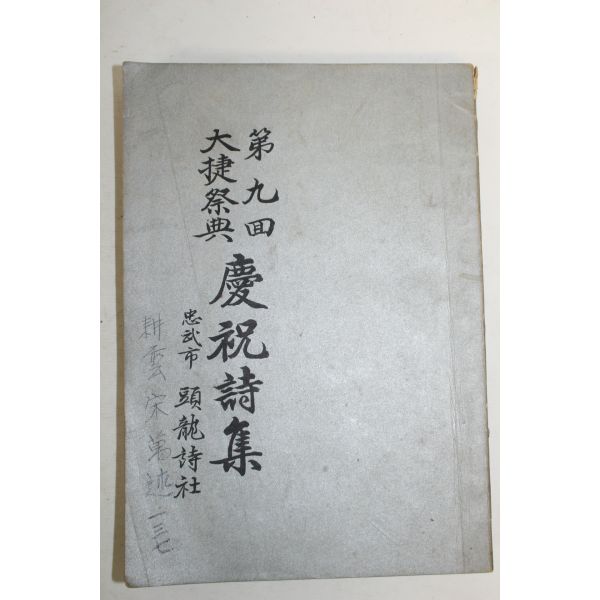 第九回
大捷祭典
慶祝詩集
忠武市
頭龍詩社
耕雲宋萬述一三七